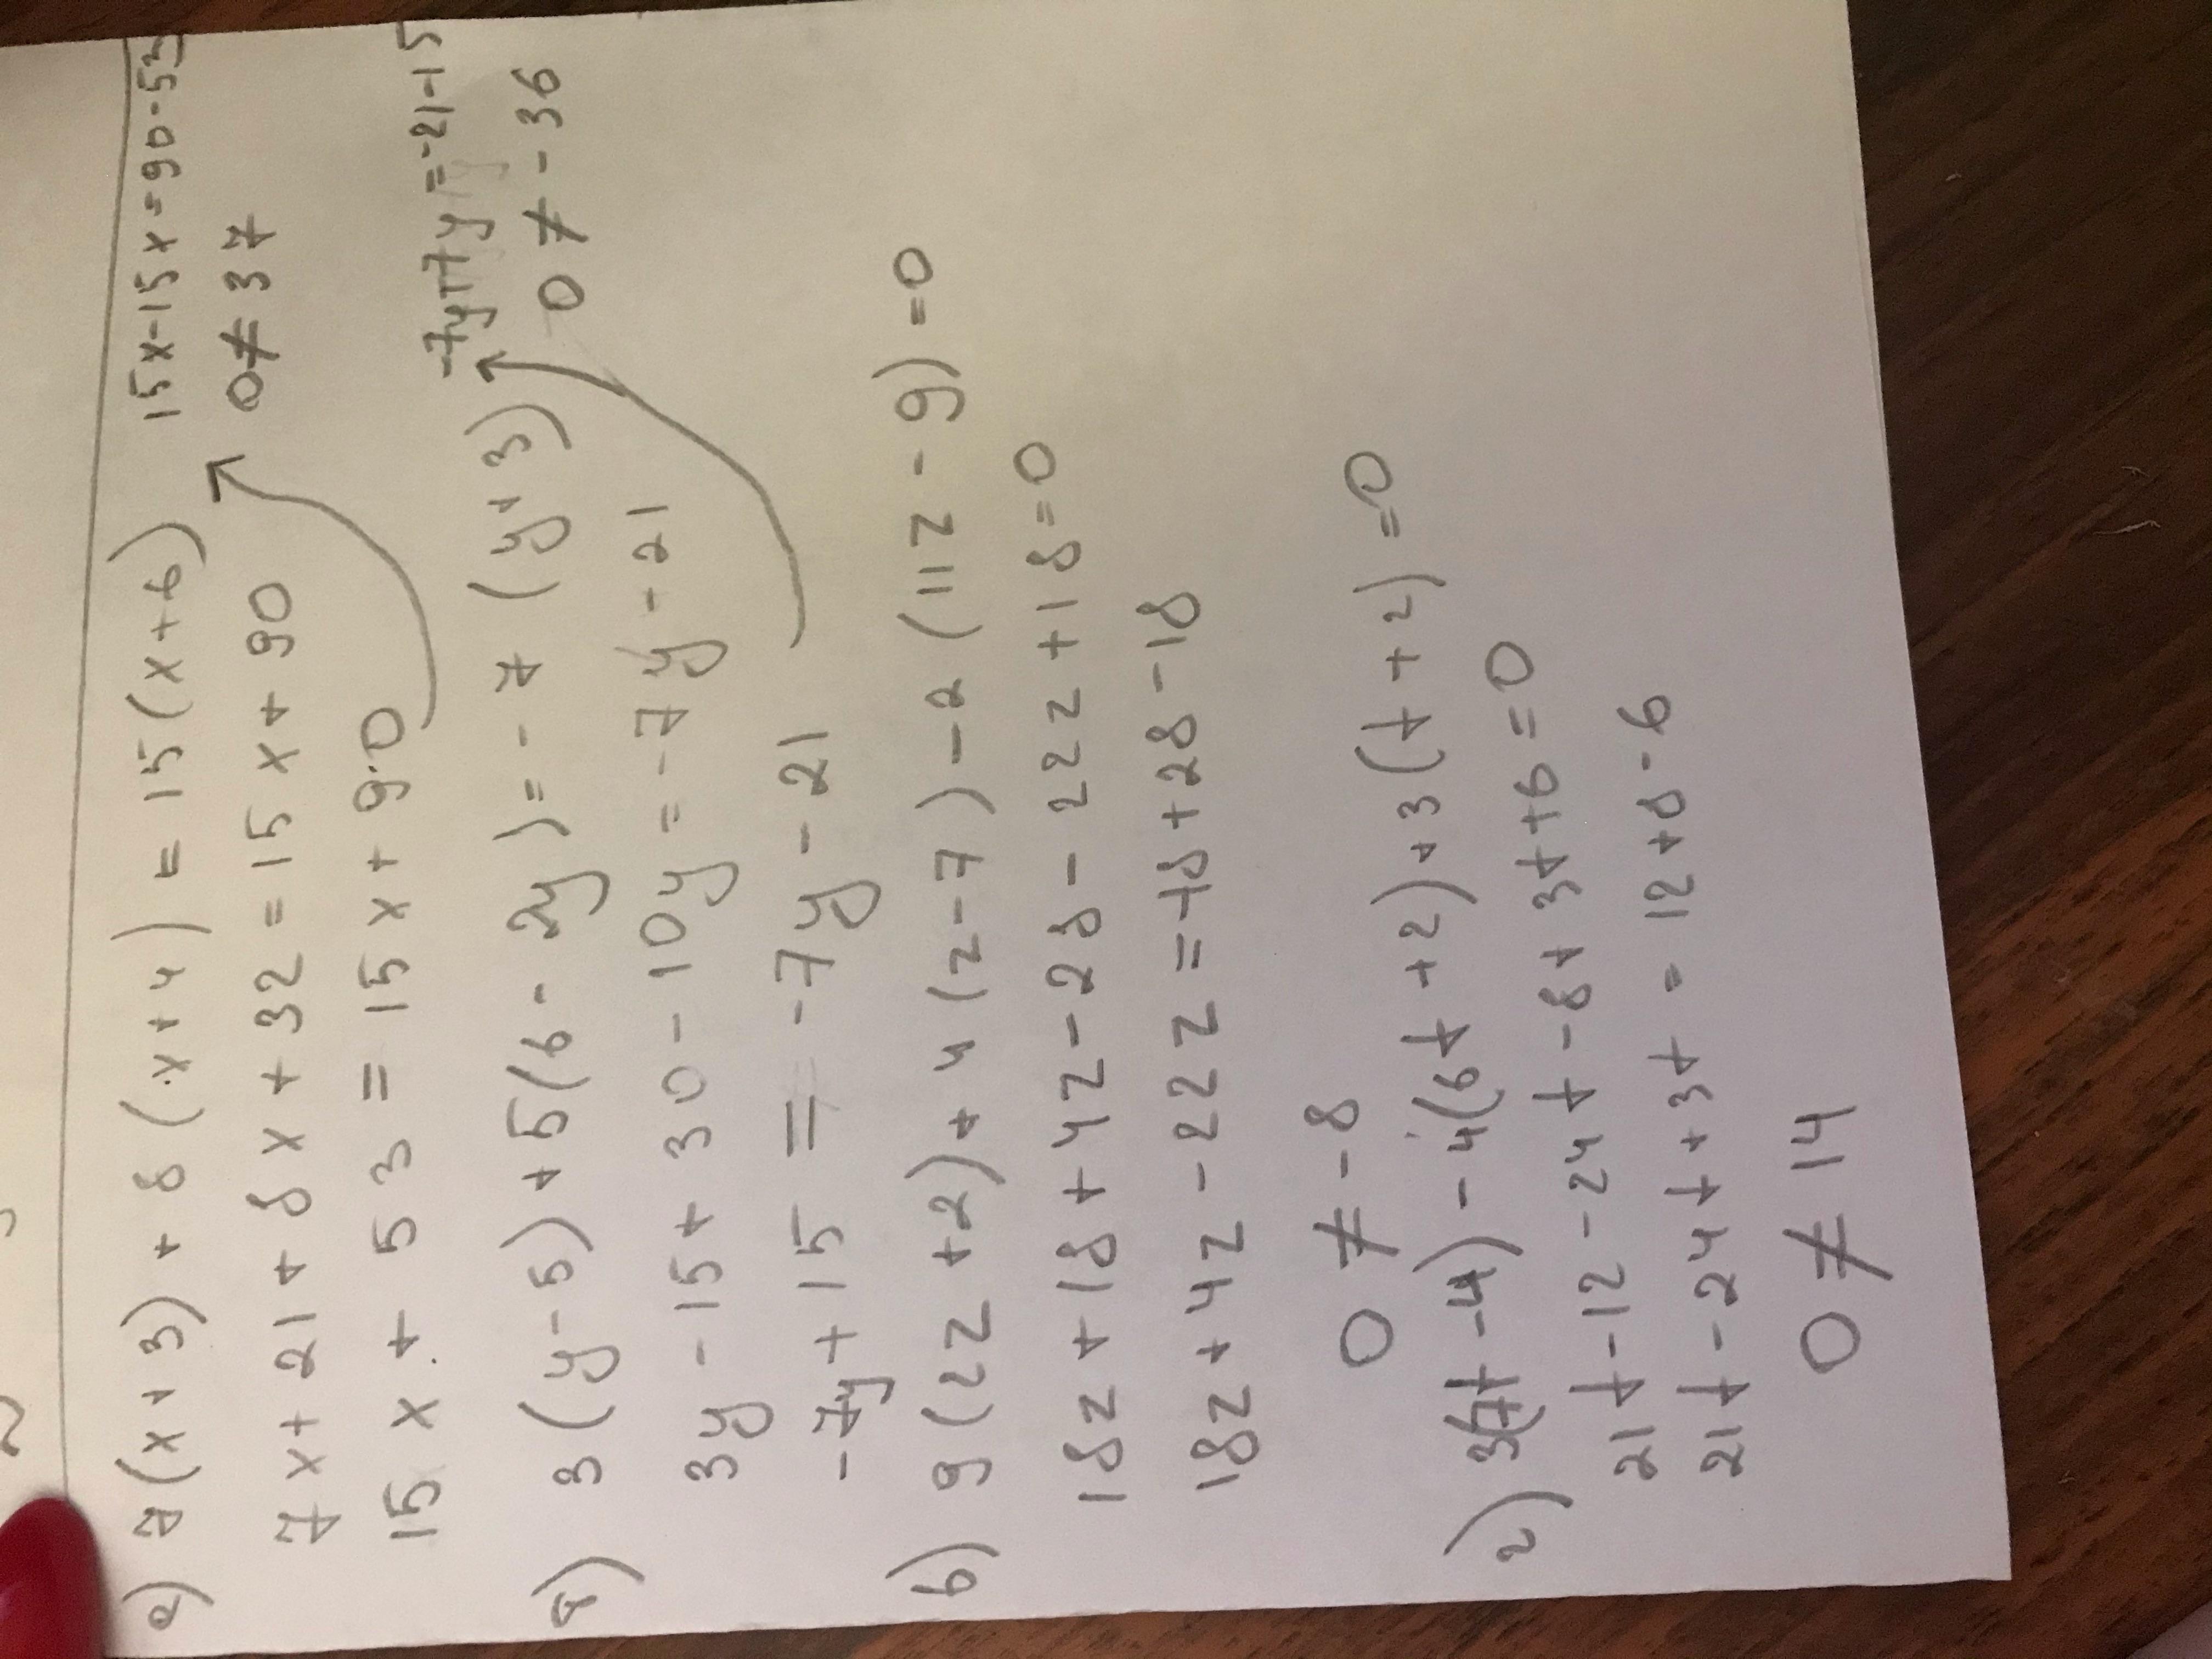 a) 7(x+3)+8(x+4)=15(x+6)
7x+21+8x+32=15x+90
15x+53=15x+90
15x-15x=90-53
0≠37
a) 3(y-5)+5(6-2y)=-7(y+3)
3y-15+30-10y=-7y-21
-7y+15=-7y-21
-7y+7y=-21-15
0≠-36
b) 9(2z+2)+4(z-7)-2(11z-9)=0
18z+18+4z-28-22z+18=0
18z+4z-22z=-18+28-18
0≠-8
г) 3(7t-4)-4(6t+2)+3(t+2)=0
21t-12-24t-8+3t+6=0
21t-24t+3t=12+8-6
0≠14